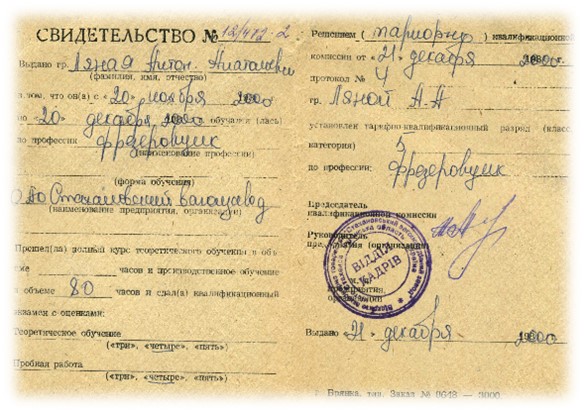 СВИДЕТЕЛЬСТВО № 12/412-2
Выдано гр. Ляной Антон Анатолиевич
(фамилия, имя, отчество)
в том, что он(а) с «20» ноября 2000
по «20» декабря 2000 обучался (лась)
по профессии фрезеровщик
(наименование профессии)
(форма обучения)
Стахановский вагонзавод
(наименование предприятия, организации)
Прошел(ла) полный курс теоретического обучения в объ
еме часов и производственное обучение
в объеме 80 часов и сдал(а) квалификационный
экзамен с оценками:
Теоретическое обучение
(«три», «четыре», «пять»)
Пробная работа
(«три», «четыре», «пять»)
Решением ( ) квалификационной
комиссии от «21» декабря 2000
протокол № 4
гр. Ляной А.А
установлен тарифно-квалификационный разряд (класс,
категория) 3
по профессии: фрезеровщик
Председатель
квалификационной комиссии
Руководитель
предприятия (организации)
ВІДДІЛ
КАДРІВ
предприятия,
организации
Выдано «21» декабря 2000
г. Брянка, тип. Заказ № 9648 — 3000